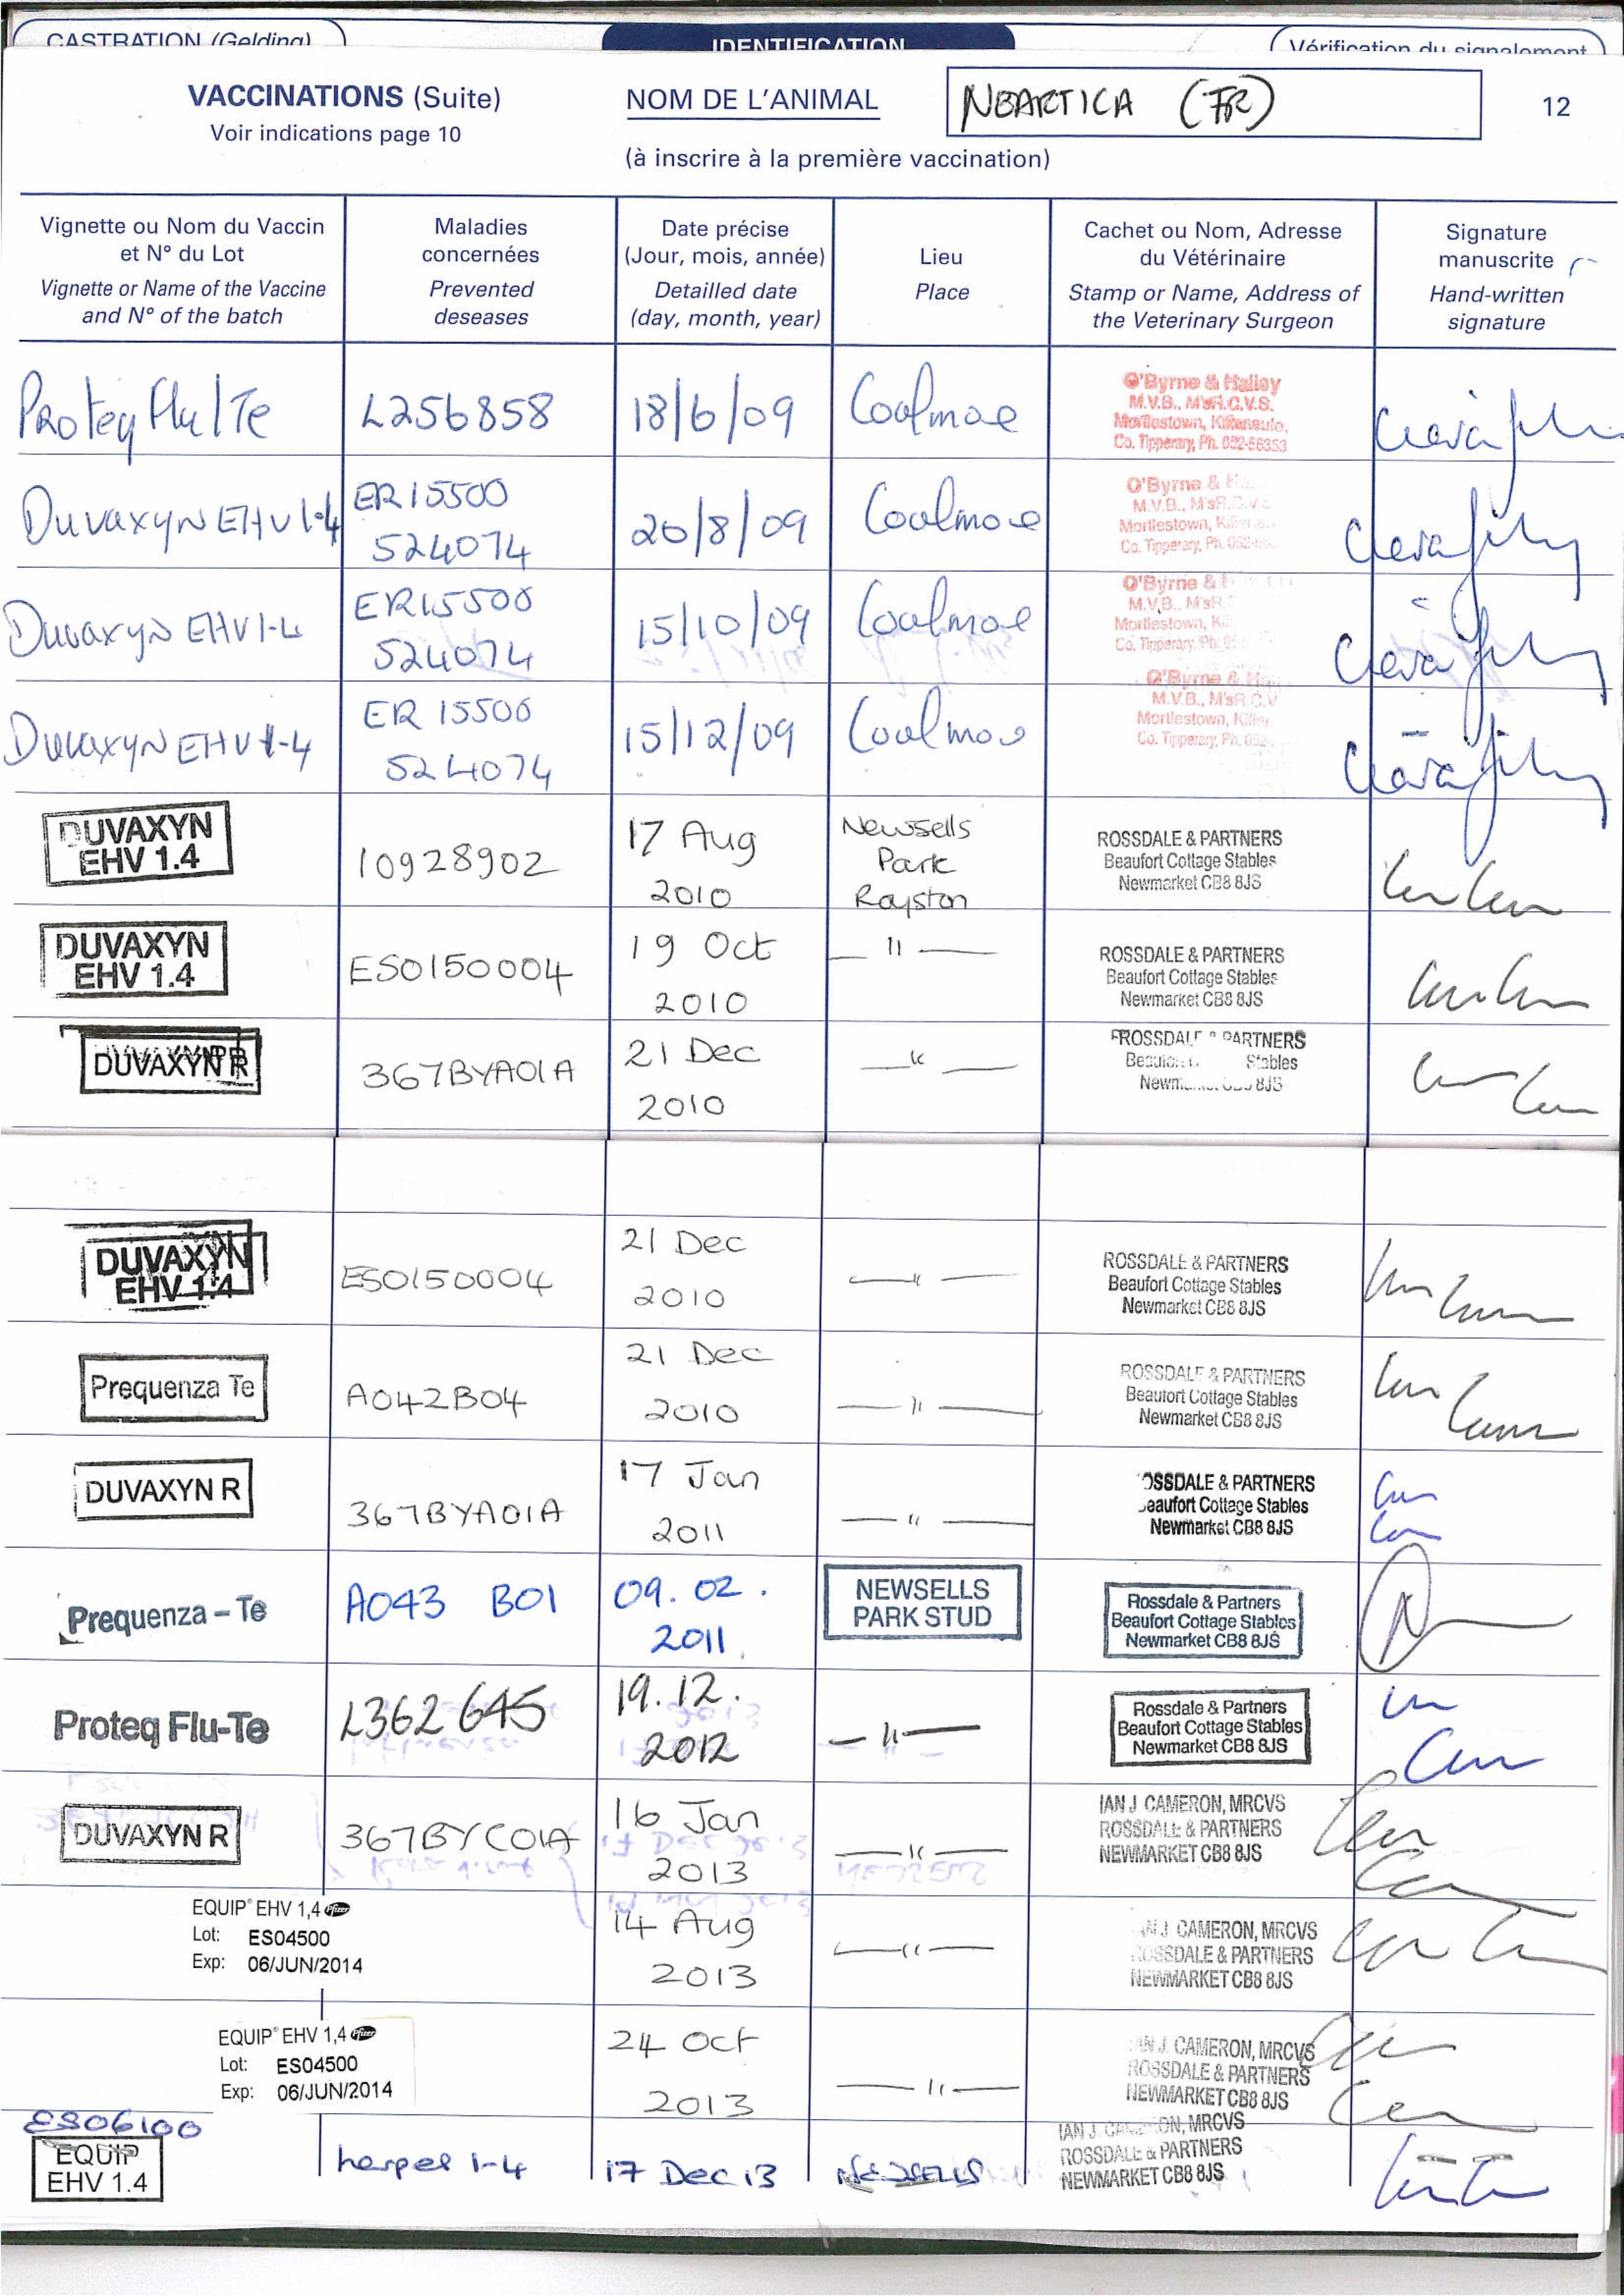 CASTRATION (Gelding)
IDENTIFICATION
Vérification du signalement
VACCINATIONS (Suite)
Voir indications page 10
NOM DE L'ANIMAL
NEARTICA (FR)
12
(à inscrire à la première vaccination)
Vignette ou Nom du Vaccin
et N° du Lot
Vignette or Name of the Vaccine
and N° of the batch
Maladies
concernées
Prevented
deseases
Date précise
(Jour, mois, année)
Detailled date
(day, month, year)
Lieu
Place
Cachet ou Nom, Adresse
du Vétérinaire
Stamp or Name, Address of
the Veterinary Surgeon
Signature
manuscrite
Hand-written
signature
Proteq Flu Te
L256858
18/6/09
Coolmore
O'Byrne & Halley
M.V.B., M'sR.C.V.S.
Mortlestown, Killenaule,
Co. Tipperary, Ph. 052-56353
Duvaxyn EHV 1-4
ER15500
524074
20/8/09
Coolmore
O'Byrne &
M.V.B., M'sR.C.V.S
Mortlestown,
Co. Tipperary, Ph. 052
Duvaxyn EHV 1-4
ER15500
524074
15/10/09
Coolmore
O'Byrne &
M.V.B., M'sR
Mortlestown,
Co. Tipperary, Ph.
Duvaxyn EHV 1-4
ER 15500
524074
15/12/09
Coolmore
O'Byrne &
M.V.B., M'sR.C.V
Mortlestown,
Co. Tipperary, Ph. 052
DUVAXYN
EHV 1.4
10928902
17 Aug
2010
Newsells
Park
Royston
ROSSDALE & PARTNERS
Beaufort Cottage Stables
Newmarket CB8 8JS
DUVAXYN
EHV 1.4
ES0150004
19 Oct
2010
— " —
ROSSDALE & PARTNERS
Beaufort Cottage Stables
Newmarket CB8 8JS
DUVAXYN R
367BYA01A
21 Dec
2010
— " —
ROSSDALE & PARTNERS
Stables
8JS
DUVAXYN
EHV 1.4
ES0150004
21 Dec
2010
— " —
ROSSDALE & PARTNERS
Beaufort Cottage Stables
Newmarket CB8 8JS
Prequenza Te
A042B04
21 Dec
2010
— " —
ROSSDALE & PARTNERS
Beaufort Cottage Stables
Newmarket CB8 8JS
DUVAXYN R
367BYA01A
17 Jan
2011
— " —
OSSDALE & PARTNERS
eaufort Cottage Stables
Newmarket CB8 8JS
Prequenza – Te
A043 B01
09.02.
2011
NEWSELLS
PARK STUD
Rossdale & Partners
Beaufort Cottage Stables
Newmarket CB8 8JS
Proteq Flu-Te
L362645
19.12.
2012
— " —
Rossdale & Partners
Beaufort Cottage Stables
Newmarket CB8 8JS
DUVAXYN R
367BYC01A
16 Jan
2013
— " —
IAN J CAMERON, MRCVS
ROSSDALE & PARTNERS
NEWMARKET CB8 8JS
EQUIP® EHV 1,4 Pfizer
Lot: ES04500
Exp: 06/JUN/2014
14 Aug
2013
— " —
J. CAMERON, MRCVS
ROSSDALE & PARTNERS
NEWMARKET CB8 8JS
EQUIP® EHV 1,4 Pfizer
Lot: ES04500
Exp: 06/JUN/2014
24 Oct
2013
— " —
IAN J. CAMERON, MRCVS
ROSSDALE & PARTNERS
NEWMARKET CB8 8JS
ES06100
EQUIP
EHV 1.4
herpes 1-4
17 Dec 13
NEWSELLS
IAN J. CAMERON, MRCVS
ROSSDALE & PARTNERS
NEWMARKET CB8 8JS